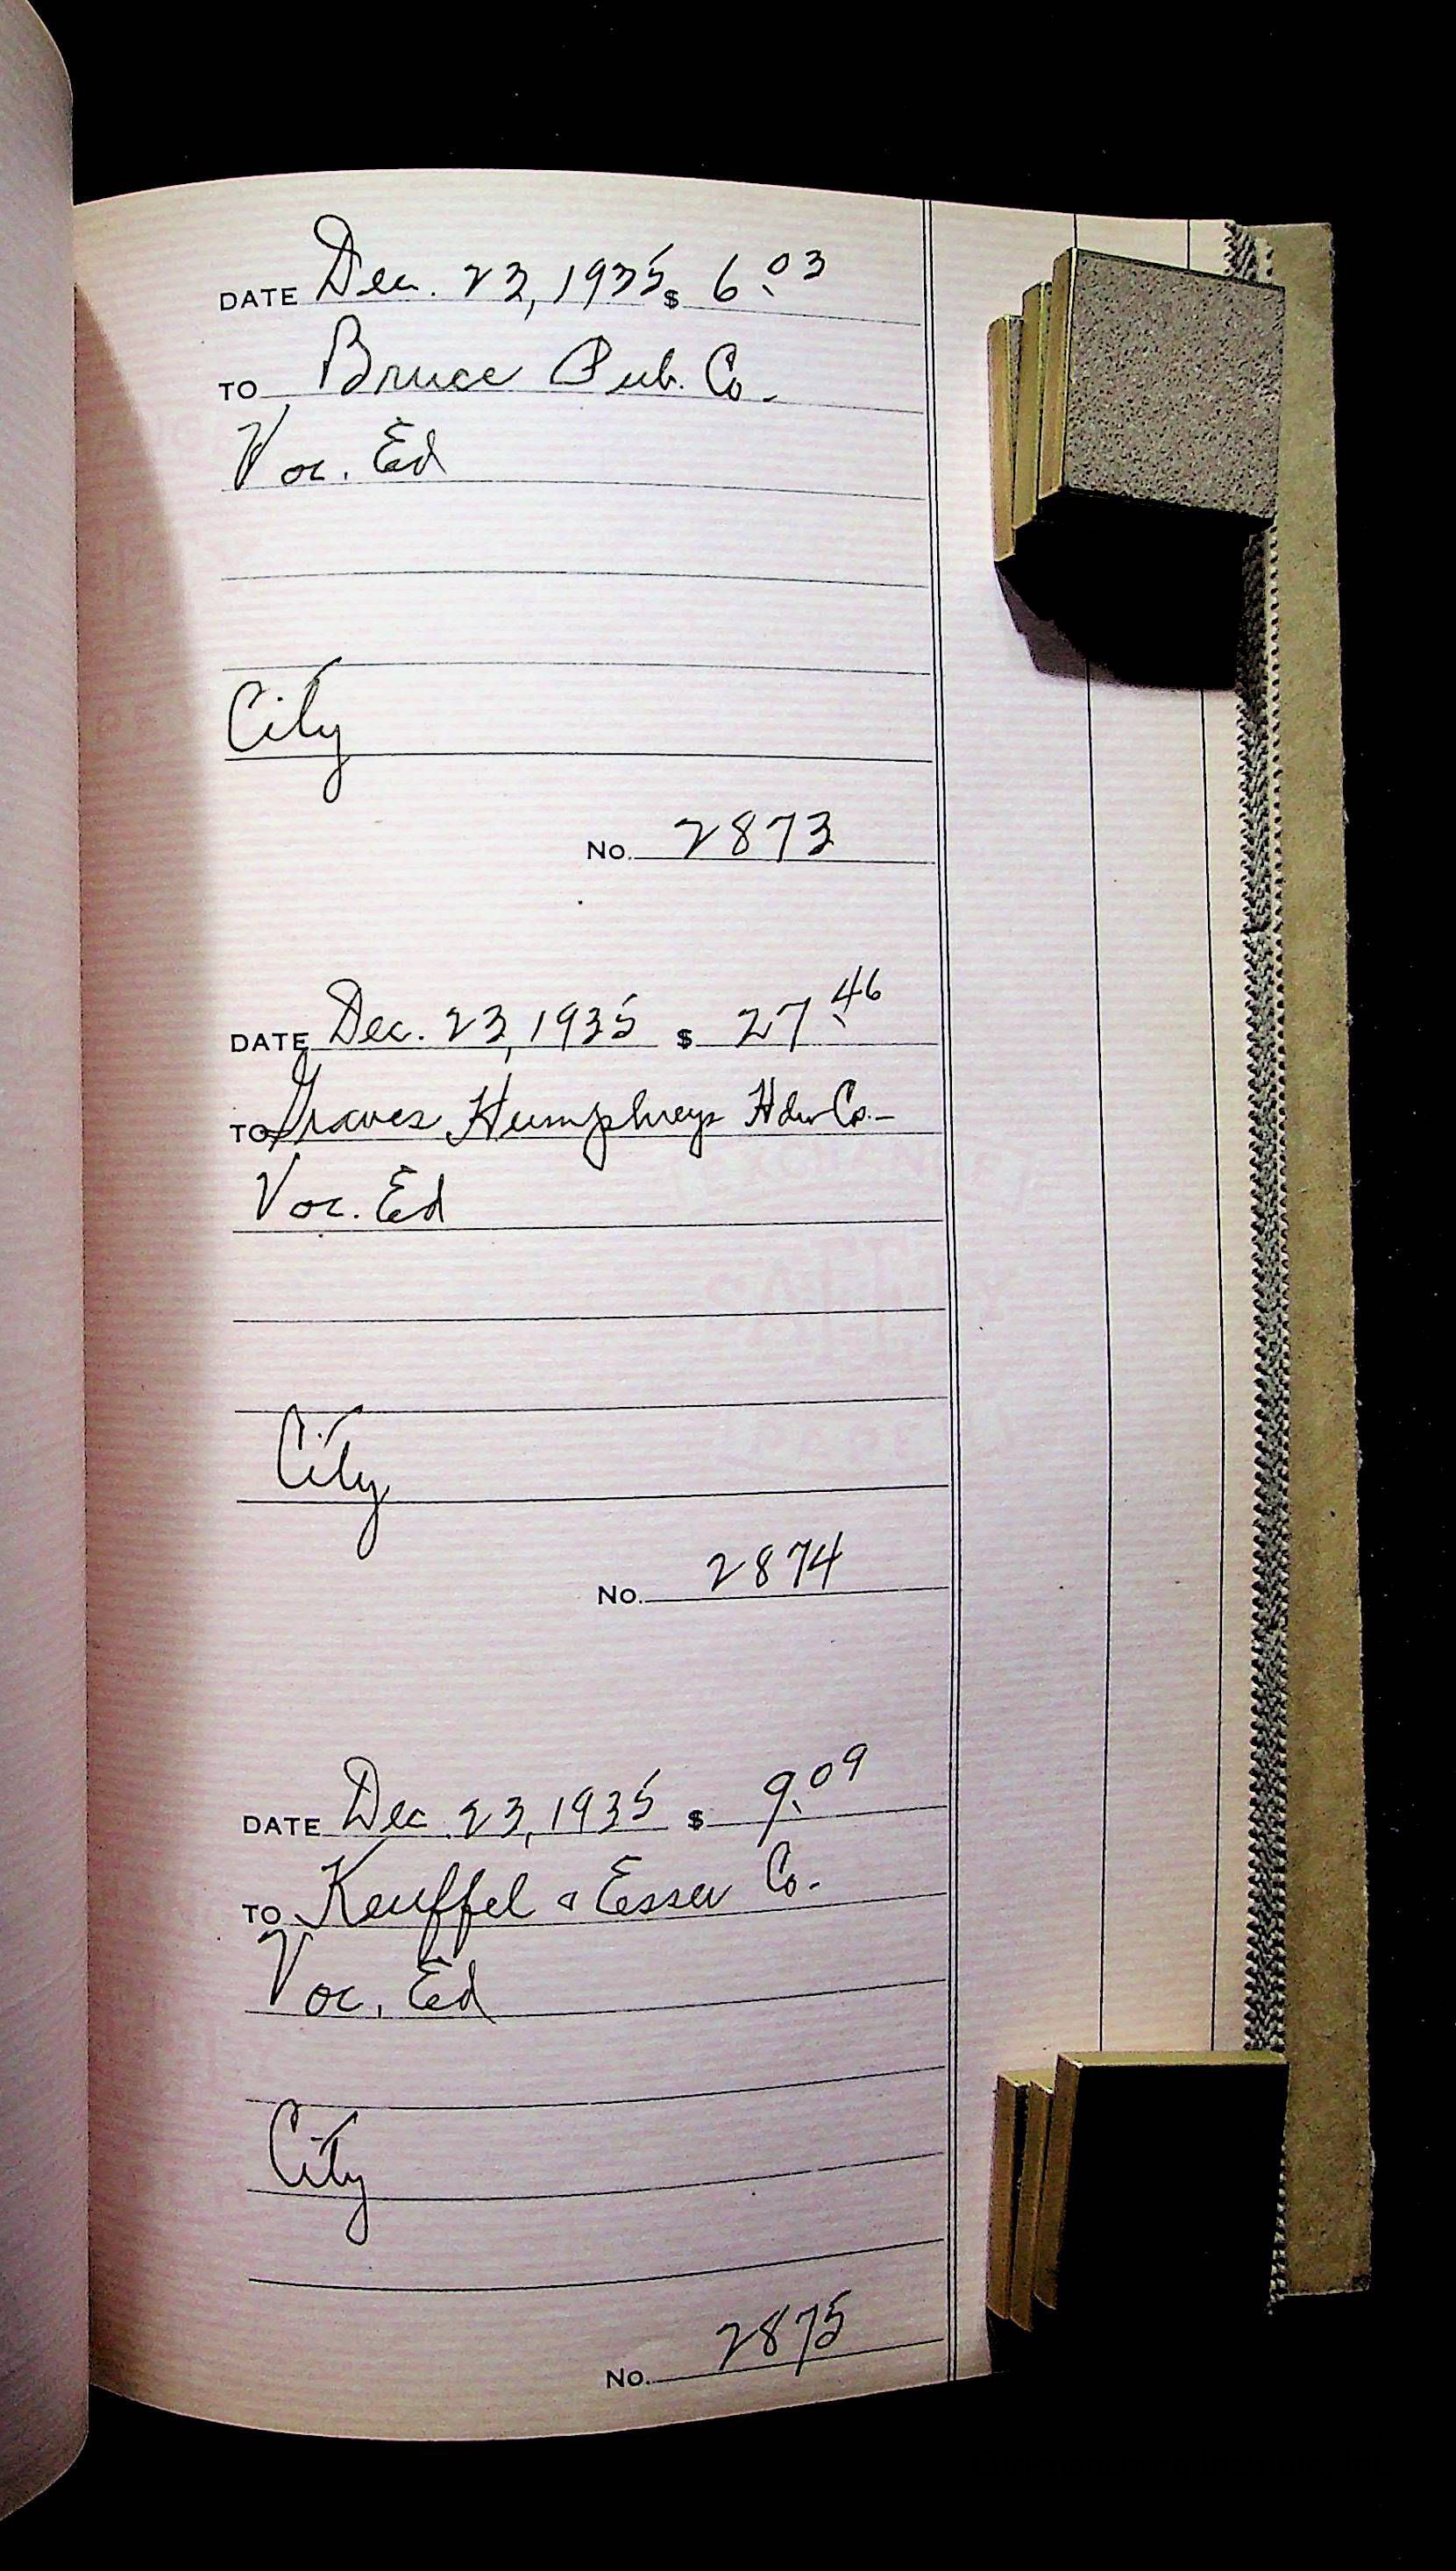 DATE Dec. 23, 1935 $ 6.03
TO Bruce Pub. Co.
Voc. Ed
City
No. 2873
DATE Dec. 23, 1935 $ 27.46
TO Graves Humphreys Hdw Co.
Voc. Ed
City
No. 2874
DATE Dec. 23, 1935 $ 9.09
TO Keuffel & Esser Co.
Voc. Ed
City
No. 2875